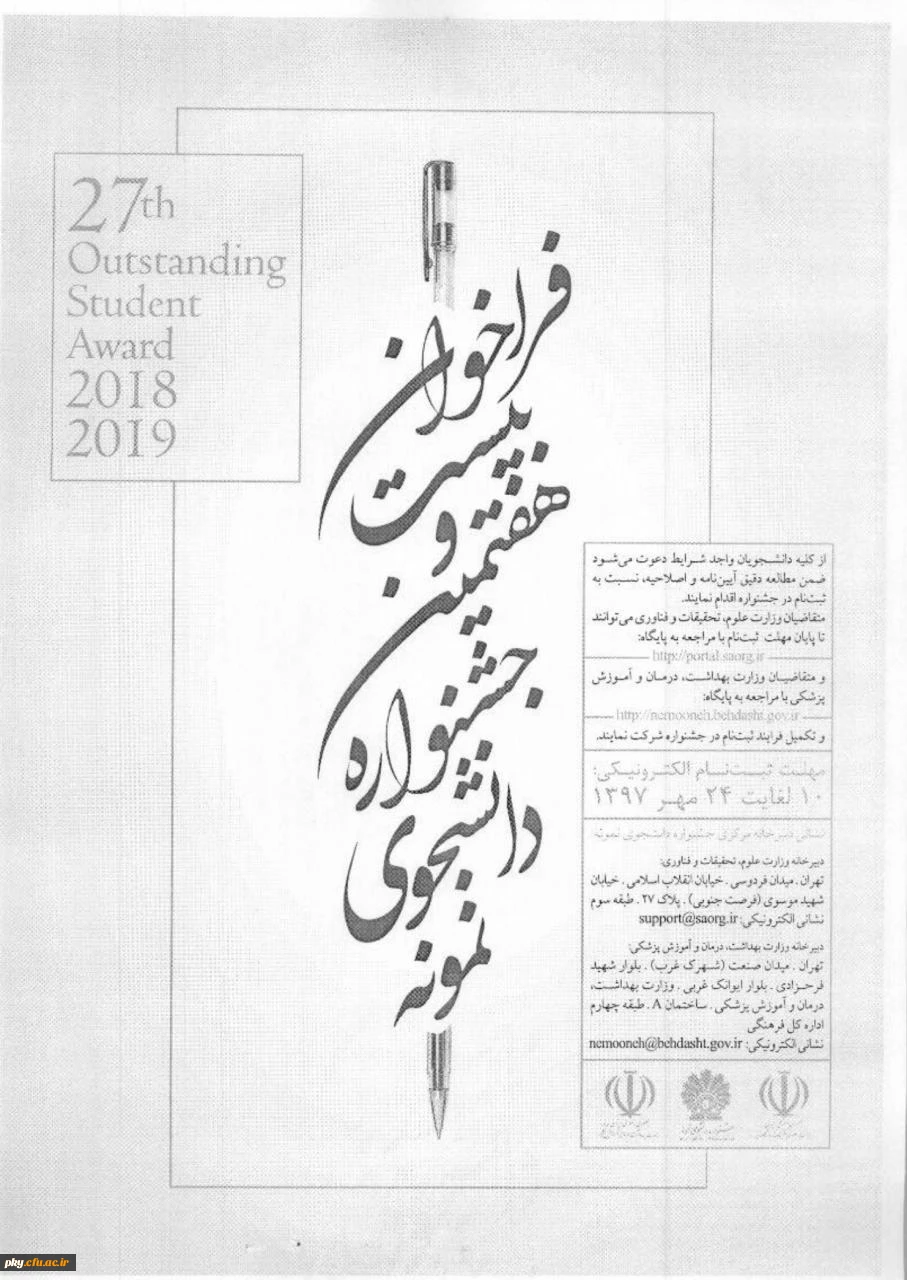 27th
Outstanding
Student
Award
2018
2019
فراخوان
بیست
و
هفتمین
جشنواره
دانشجوی
نمونه
از کلیه دانشجویان واجد شرایط دعوت می‌شود
ضمن مطالعه دقیق آیین‌نامه و اصلاحیه، نسبت به
ثبت‌نام در جشنواره اقدام نمایند.
متقاضیان وزارت علوم، تحقیقات و فناوری می‌توانند
تا پایان مهلت ثبت‌نام با مراجعه به پایگاه:
http://portal.saorg.ir
و متقاضیان وزارت بهداشت، درمان و آموزش
پزشکی با مراجعه به پایگاه:
http://nemooneh.behdasht.gov.ir
و تکمیل فرایند ثبت‌نام در جشنواره شرکت نمایند.
مهلت ثبت‌نام الکترونیکی:
۱۰ لغایت ۲۴ مهر ۱۳۹۷
نشانی دبیرخانه مرکزی جشنواره دانشجوی نمونه
دبیرخانه وزارت علوم، تحقیقات و فناوری:
تهران . میدان فردوسی . خیابان انقلاب اسلامی . خیابان
شهید موسوی (فرصت جنوبی) . پلاک ۲۷ . طبقه سوم
نشانی الکترونیکی: support@saorg.ir
دبیرخانه وزارت بهداشت، درمان و آموزش پزشکی:
تهران . میدان صنعت (شهرک غرب) . بلوار شهید
فرحزادی . بلوار ایوانک غربی . وزارت بهداشت،
درمان و آموزش پزشکی . ساختمان A . طبقه چهارم
اداره کل فرهنگی
نشانی الکترونیکی: nemooneh@behdasht.gov.ir
pky.cfu.ac.ir